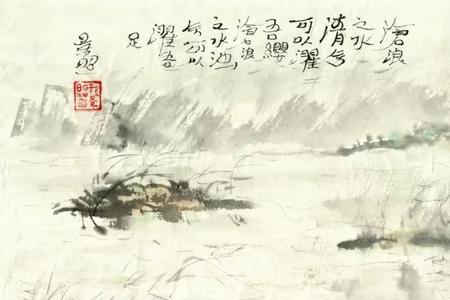 滄浪
之水
清兮
可以濯
吾纓
滄浪
之水浊
兮可以
濯吾
足